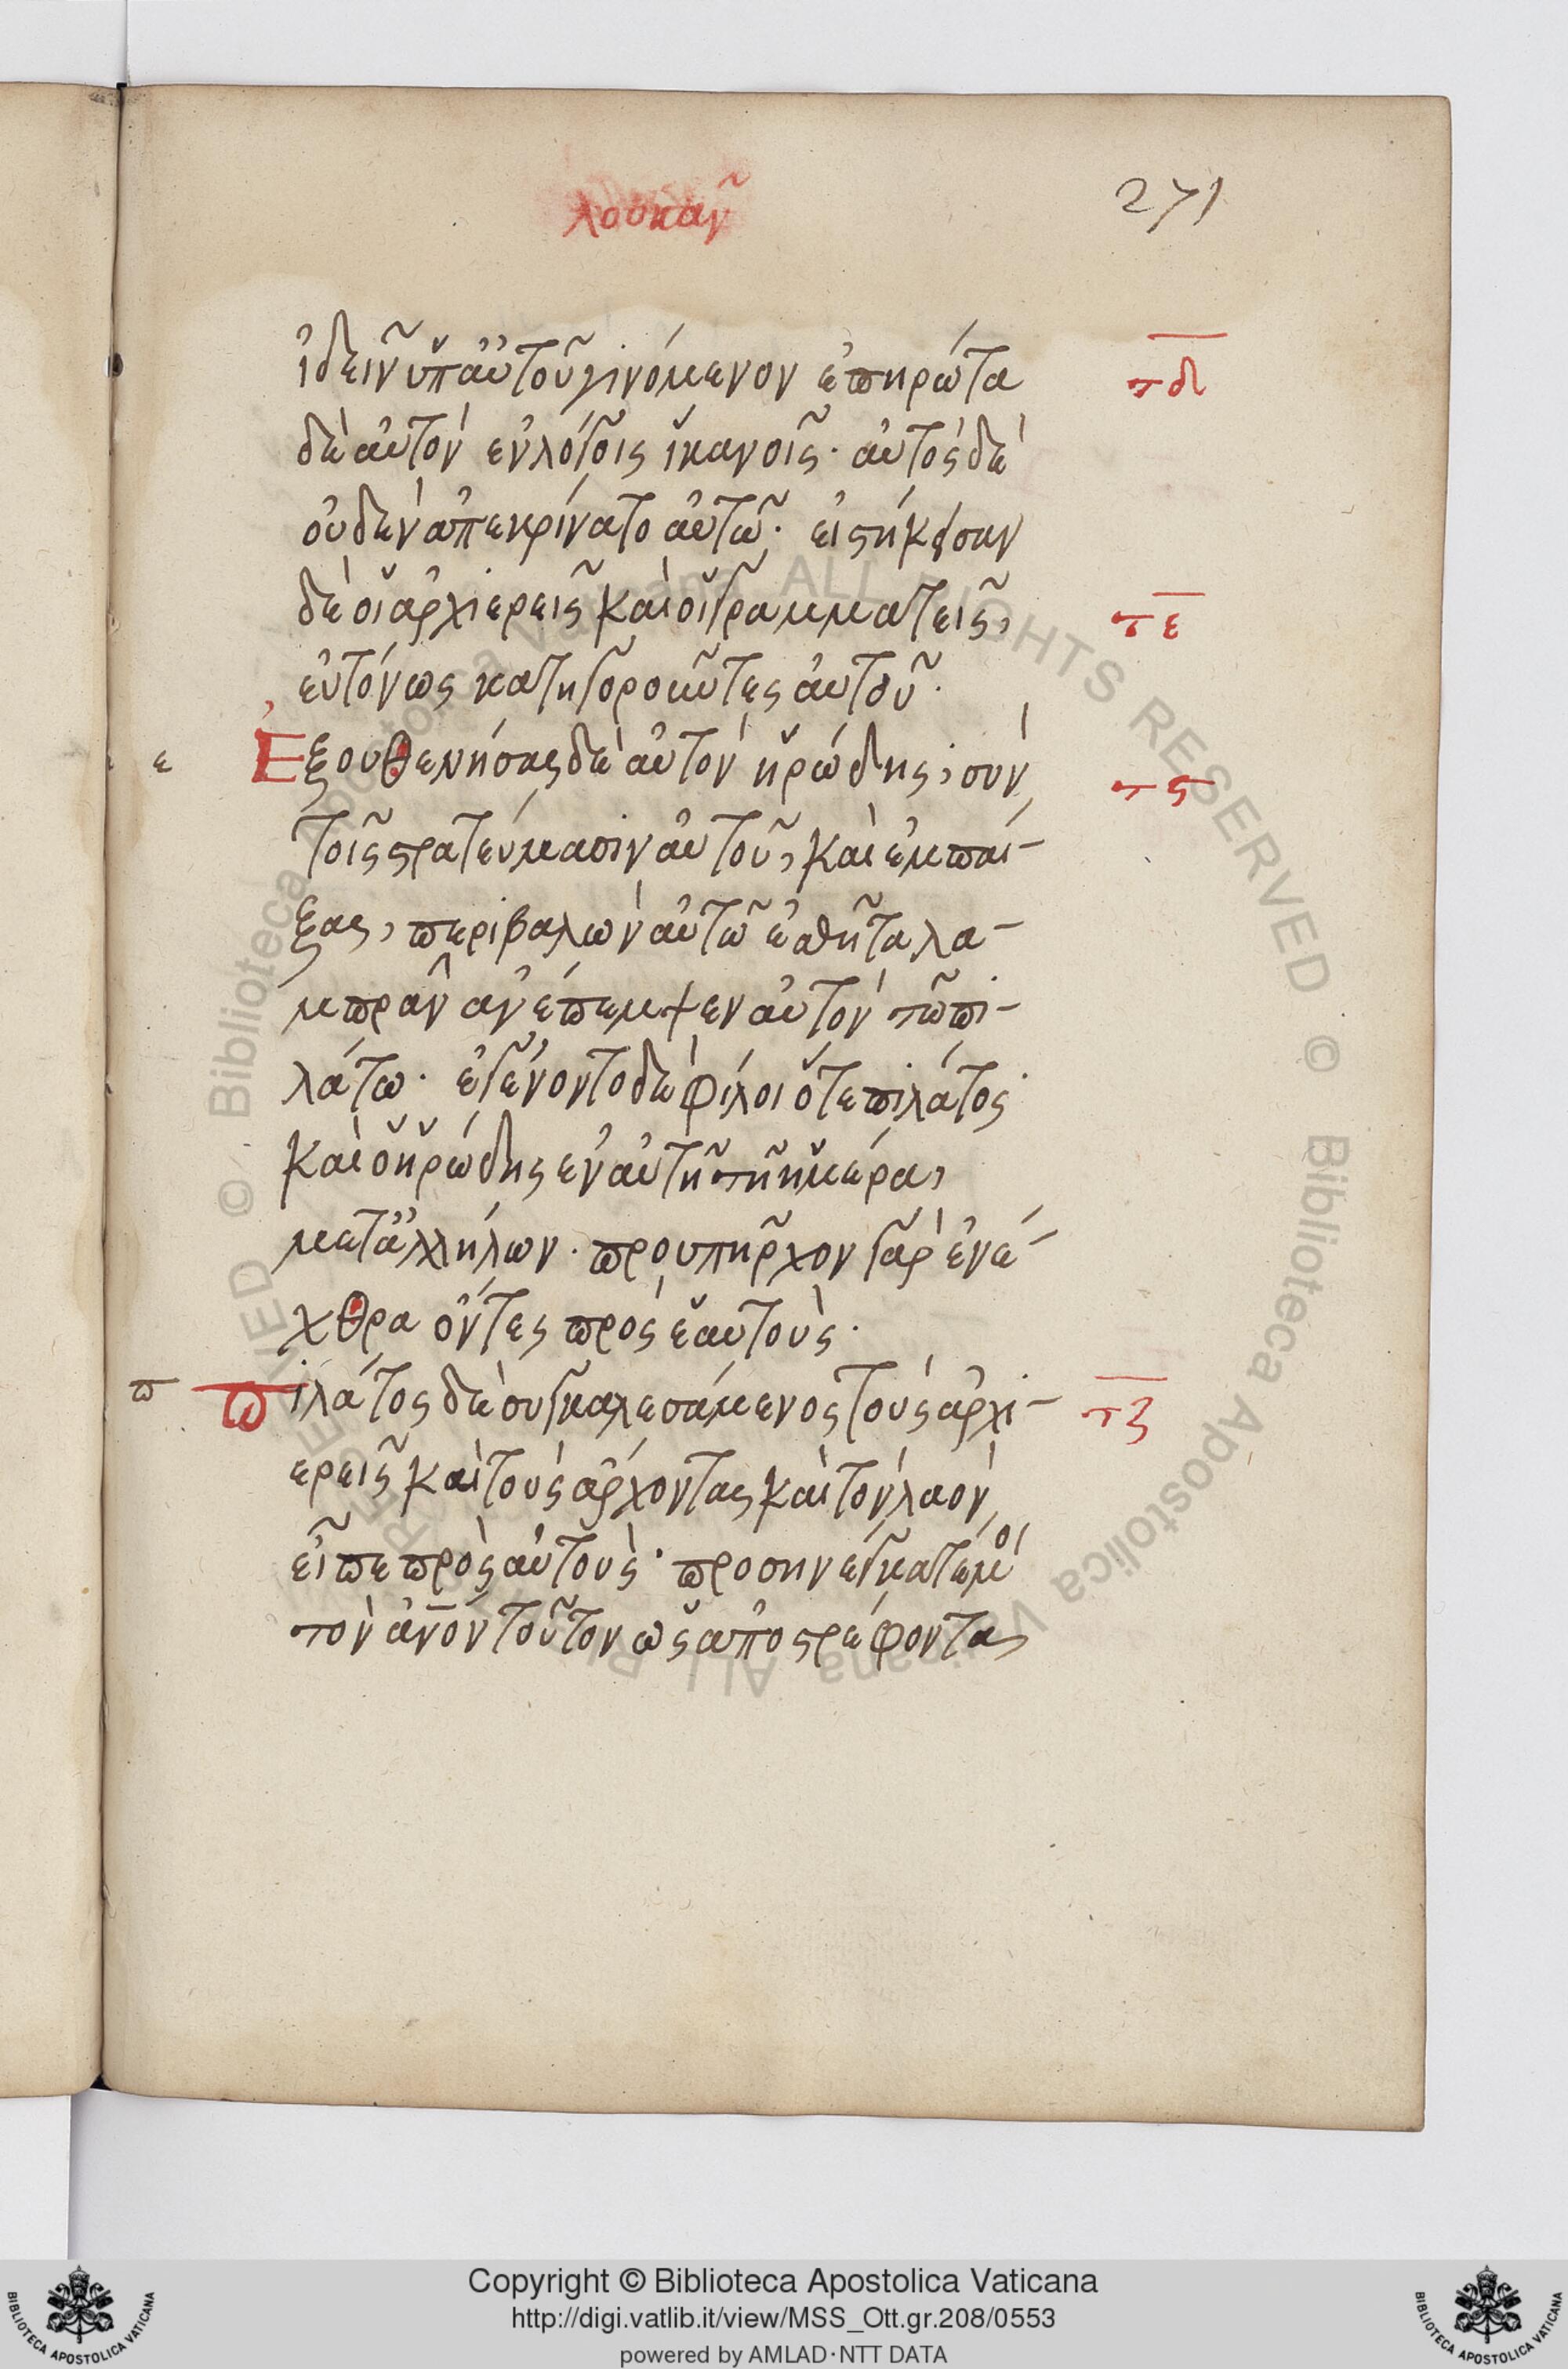 λουκᾶν
271
ἰδεῖν ὑπ' αὐτοῦ γινόμενον ἐπηρώτα
τδ
δὲ αὐτὸν ἐν λόγοις ἱκανοῖς· αὐτὸς δὲ
οὐδὲν ἀπεκρίνατο αὐτῶ· εἱστήκεσαν
δὲ οἱ ἀρχιερεῖς καὶ οἱ γραμματεῖς,
τε
εὐτόνως κατηγοροῦντες αὐτοῦ·
ε
Ἐξουθενήσας δὲ αὐτὸν ἡρώδης, σὺν
τς
τοῖς στρατεύμασιν αὐτοῦ, καὶ ἐμπαί-
ξας, περιβαλὼν αὐτῶ ἐσθῆτα λα-
μπρὰν ἀνέπεμψεν αὐτὸν τῶ πι-
λάτω· ἐγένοντο δὲ φίλοι ὅτε πιλάτος
καὶ ὁ ἡρώδης ἐν αὐτῆ τῆ ἡμέρα,
μετ' ἀλλήλων· προυπῆρχον γὰρ ἐν ἐ-
χθρα ὄντες πρὸς ἑαυτοὺς·
π
Πιλάτος δὲ συγκαλεσάμενος τοὺς ἀρχι-
τζ
ερεῖς καὶ τοὺς ἄρχοντας καὶ τὸν λαὸν,
εἶπε πρὸς αὐτοὺς· προσηνέγκατέ μοι
τὸν ἄνον τοῦτον ὡς ἀποστρέφοντα
Copyright © Biblioteca Apostolica Vaticana
http://digi.vatlib.it/view/MSS_Ott.gr.208/0553
powered by AMLAD·NTT DATA
BIBLIOTECA APOSTOLICA VATICANA
BIBLIOTECA APOSTOLICA VATICANA
© Biblioteca Apostolica Vaticana ALL RIGHTS RESERVED © Biblioteca Apostolica Vaticana ALL RIGHTS RESERVED